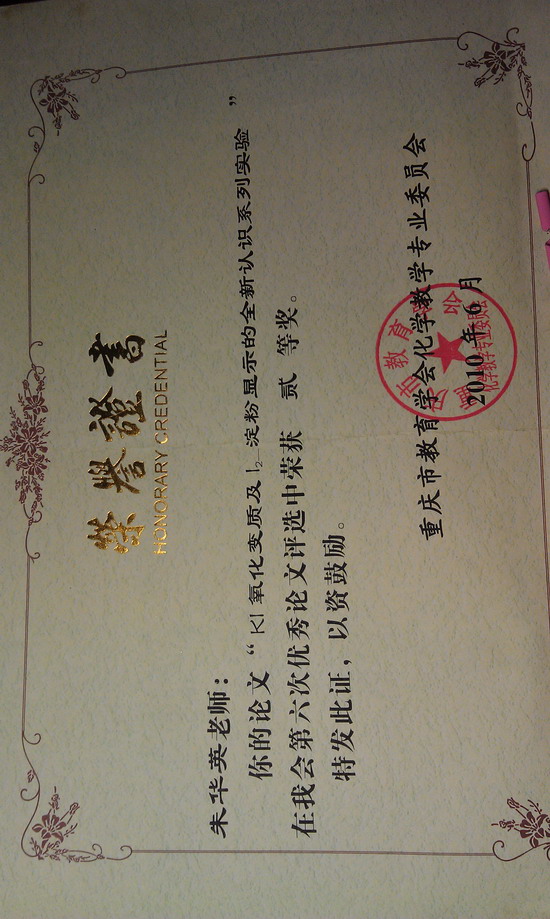 榮譽證書
HONORARY CREDENTIAL
朱华英老师：
你的论文“KI氧化变质及I₂—淀粉显示的全新认识系列实验”
在我会第六次优秀论文评选中荣获 贰 等奖。
特发此证，以资鼓励。
重庆市教育学会化学教学专业委员会
2010年6月
化学教学专业委员会